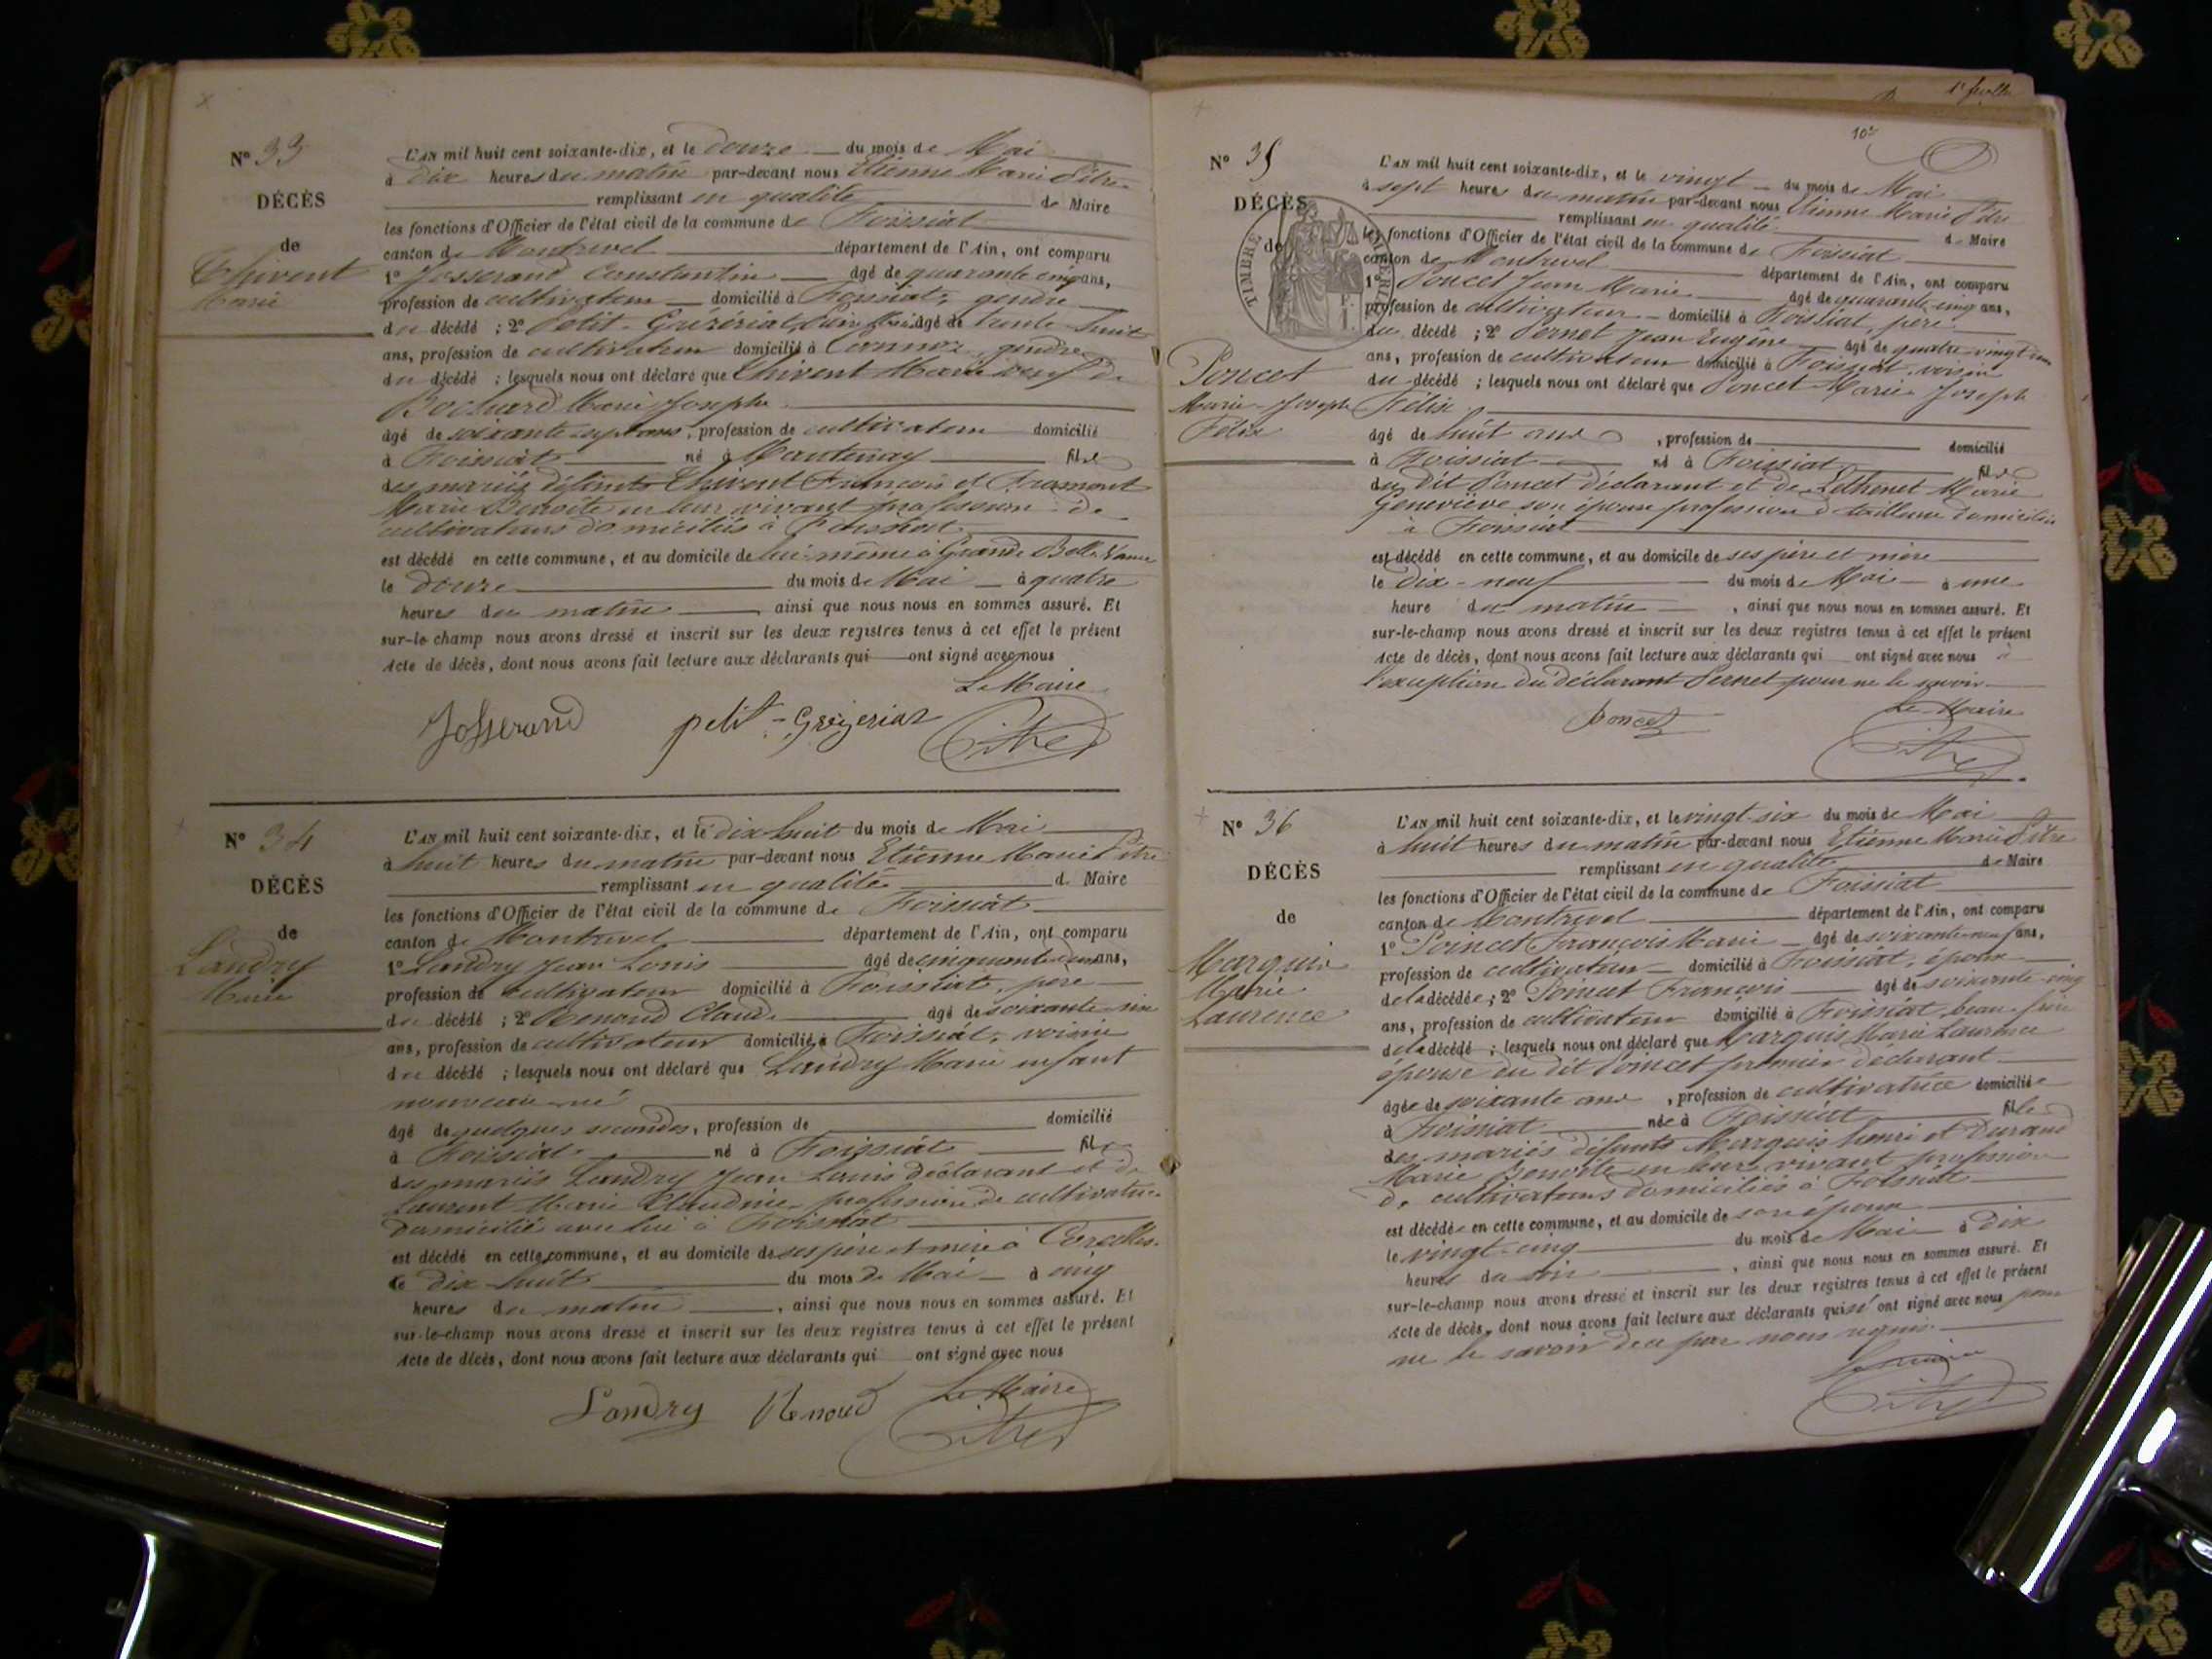 N° 33
DÉCÈS
de
Thivent
Marie
L'AN mil huit cent soixante-dix, et le douze du mois de Mai
à dix heures du matin par-devant nous Etienne Marie Pitre
remplissant en qualité de Maire
les fonctions d'Officier de l'état civil de la commune de Foissiat
canton de Montrevel département de l'Ain, ont comparu
1° Josserand Constantin âgé de quarante cinq ans,
profession de cultivateur domicilié à Foissiat, gendre
du décédé ; 2° Petit-Grézériat âgé de trente huit
ans, profession de cultivateur domicilié à gendre
du décédé ; lesquels nous ont déclaré que Thivent Marie veuf de
Bochard Marie Josephe
âgé de soixante ans, profession de cultivateur domicilié
à Foissiat né à Mantenay fils
des mariés défunts Thivent François et
Marie Benoite en leur vivant profession de
cultivateurs domiciliés à
est décédé en cette commune, et au domicile de lui-même à Grande Belle Vavre
le douze du mois de Mai à quatre
heures du matin ainsi que nous nous en sommes assuré. Et
sur-le-champ nous avons dressé et inscrit sur les deux registres tenus à cet effet le présent
Acte de décès, dont nous avons fait lecture aux déclarants qui ont signé avec nous
Le Maire
Josserand petit-Grézeriat Pitre
N° 34
DÉCÈS
de
Landry
Marie
L'AN mil huit cent soixante-dix, et le dix huit du mois de Mai
à huit heures du matin par-devant nous Etienne Marie Pitre
remplissant en qualité de Maire
les fonctions d'Officier de l'état civil de la commune de Foissiat
canton de Montrevel département de l'Ain, ont comparu
1° Landry Jean Louis âgé de cinquante deux ans,
profession de cultivateur domicilié à Foissiat, père
du décédé ; 2° Renoud Claude âgé de soixante six
ans, profession de cultivateur domicilié à Foissiat, voisin
du décédé ; lesquels nous ont déclaré que Landry Marie enfant
nouveau-né
âgé de quelques secondes, profession de domicilié
à Foissiat né à Foissiat fils
des mariés Landry Jean Louis déclarant et de
Laurent Marie Claudine profession de cultivatrice
domicilié avec lui à Foissiat
est décédé en cette commune, et au domicile de ses père et mère à Corcelles
le dix-huit du mois de Mai à cinq
heures du matin, ainsi que nous nous en sommes assuré. Et
sur-le-champ nous avons dressé et inscrit sur les deux registres tenus à cet effet le présent
Acte de décès, dont nous avons fait lecture aux déclarants qui ont signé avec nous
Le Maire
Landry Renoud Pitre
1re feuille
102
N° 35
DÉCÈS
de
TIMBRE IMPERIAL
Poncet
Marie-Joseph
Félix
L'AN mil huit cent soixante-dix, et le vingt du mois de Mai
à sept heures du matin par-devant nous Etienne Marie Pitre
remplissant en qualité de Maire
les fonctions d'Officier de l'état civil de la commune de Foissiat
canton de Montrevel département de l'Ain, ont comparu
1° Poncet Jean Marie âgé de quarante cinq ans,
profession de cultivateur domicilié à Foissiat, père
du décédé ; 2° Pernet Jean Eugène âgé de quatre-vingt
ans, profession de cultivateur domicilié à Foissiat, voisin
du décédé ; lesquels nous ont déclaré que Poncet Marie Joseph
Félix
âgé de huit ans, profession de domicilié
à Foissiat né à Foissiat fils
du dit Poncet déclarant et de Marie
Geneviève son épouse profession de tailleuse domiciliée
à Foissiat
est décédé en cette commune, et au domicile de ses père et mère
le dix-neuf du mois de Mai à une
heure du matin, ainsi que nous nous en sommes assuré. Et
sur-le-champ nous avons dressé et inscrit sur les deux registres tenus à cet effet le présent
Acte de décès, dont nous avons fait lecture aux déclarants qui ont signé avec nous à
l'exception du déclarant Pernet pour ne le savoir
Le Maire
Poncet Pitre
N° 36
DÉCÈS
de
Marquis
Marie
Laurence
L'AN mil huit cent soixante-dix, et le vingt-six du mois de Mai
à huit heures du matin par-devant nous Etienne Marie Pitre
remplissant en qualité de Maire
les fonctions d'Officier de l'état civil de la commune de Foissiat
canton de Montrevel département de l'Ain, ont comparu
1° Poincet François Marie âgé de soixante-neuf ans,
profession de cultivateur domicilié à Foissiat, époux
de la décédée ; 2° Poincet François âgé de soixante-cinq
ans, profession de cultivateur domicilié à Foissiat, beau-frère
de la décédé ; lesquels nous ont déclaré que Marquis Marie Laurence
épouse du dit Poincet premier déclarant
âgée de soixante ans, profession de cultivatrice domiciliée
à Foissiat née à Foissiat fille
des mariés défunts Marquis Henri et Durand
Marie Benoite en leur vivant profession
de cultivateurs domiciliés à Foissiat
est décédée en cette commune, et au domicile de son époux
le vingt-cinq du mois de Mai à dix
heures du soir, ainsi que nous nous en sommes assuré. Et
sur-le-champ nous avons dressé et inscrit sur les deux registres tenus à cet effet le présent
Acte de décès, dont nous avons fait lecture aux déclarants qui n'ont signé avec nous pour
ne le savoir de ce par nous requis
Le Maire
Pitre